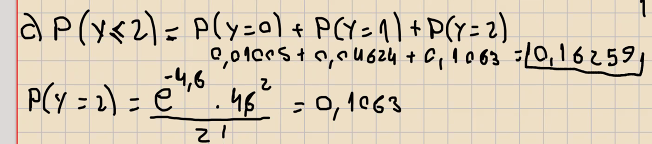 c) P(Y≤2) = P(Y=0) + P(Y=1) + P(Y=2)
0,01005 + 0,04624 + 0,1063 = 0,16259
P(Y=2) = e^-4,6 · 4,6^2 / 2! = 0,1063